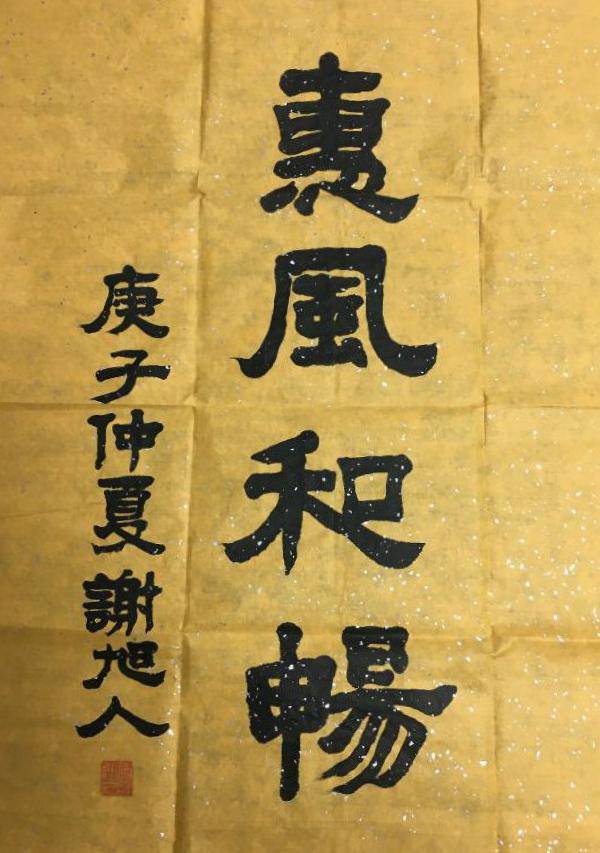 惠風和暢
庚子仲夏謝旭人